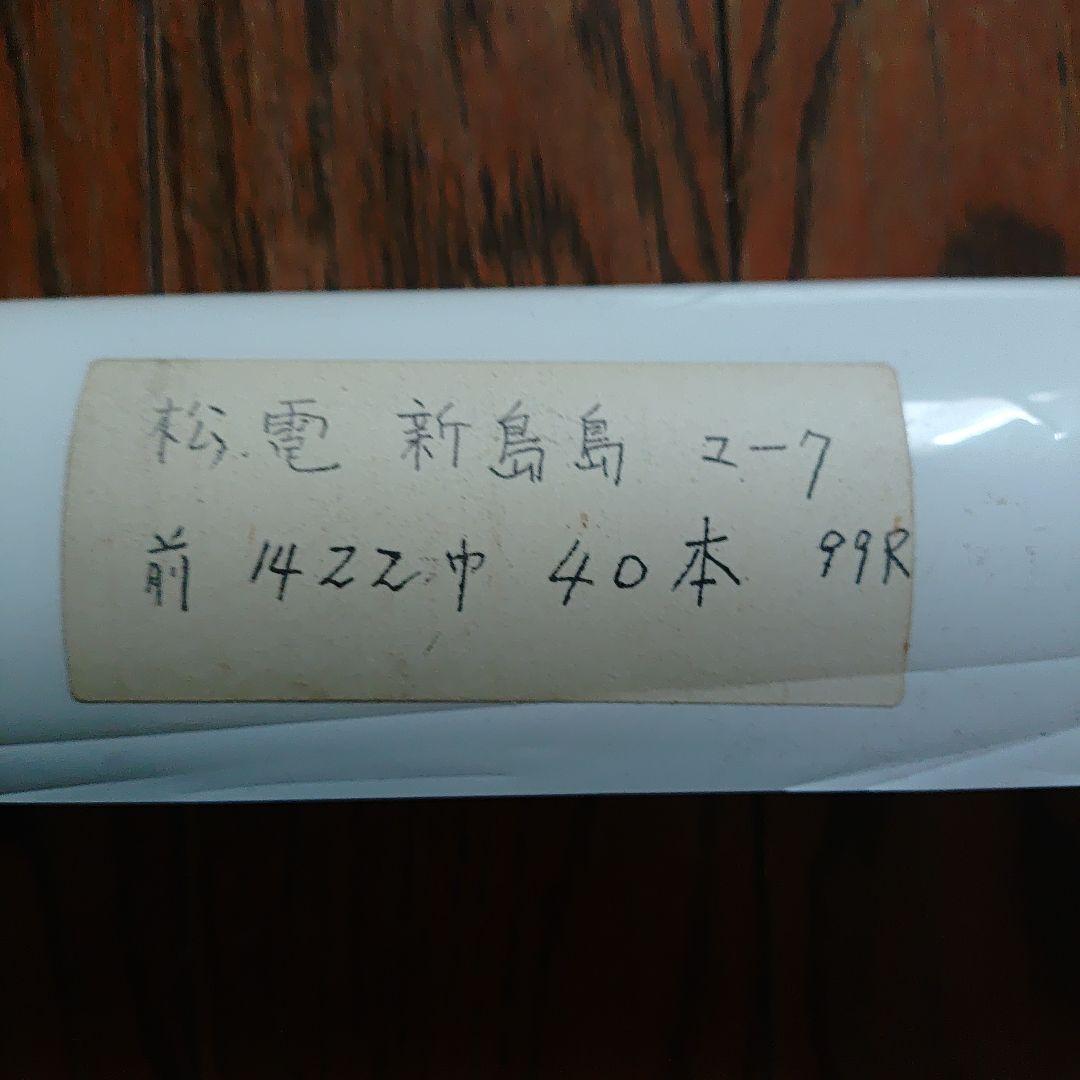 松電 新島島 ユーク
前 1422巾 40本 99R